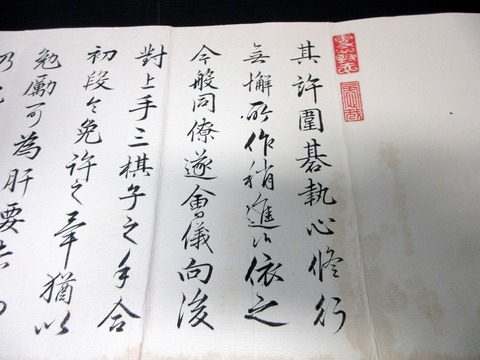 其許圍碁執心修行
無懈所作稍進以依之
今般同僚遂會儀向後
對上手三棋子之手合
初段令免許之畢猶以
勉勵可為肝要者
乃